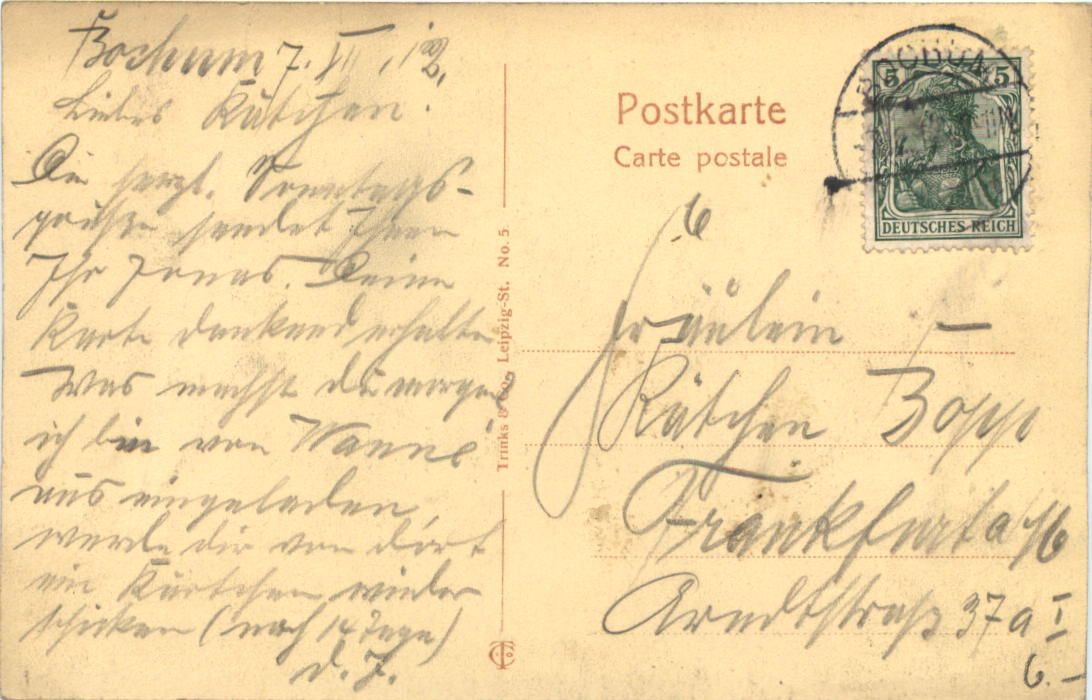 Bochum 7. XII. 12.
Liebes Kätchen!
Die herzl. Sonntags-
grüße sendet Ihnen
Ihr Jonas. Deine
Karte dankend erhalten
Was machst du morgen
ich bin von Wanne
aus eingeladen,
werde dir von dort
ein Kärtchen wieder
schicken (nach 14 Tage)
d. J.
Trinks & Co., Leipzig-St. No. 5
Postkarte
Carte postale
BOCHUM
5 5
DEUTSCHES REICH
Fräulein
Kätchen Bopp
Frankfurt a/M
Arndtstraße 37a I
6.-